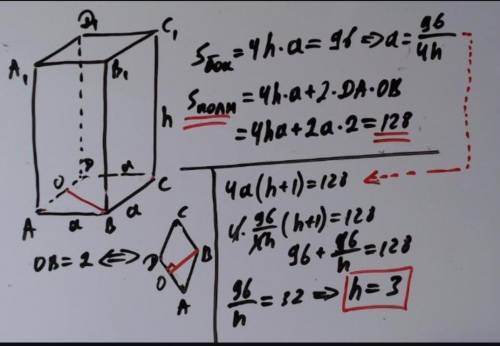 D₁ C₁
A₁ B₁
h
D a C
O
A a B a
OB = 2 <=>
C
D B
O
A
Sбок = 4h·a = 96 => a = 96/4h
Sполн = 4h·a + 2·DA·OB
= 4ha + 2a·2 = 128
4a(h+1) = 128
4·96/4h (h+1) = 128
96 + 96/h = 128
96/h = 32 => h = 3